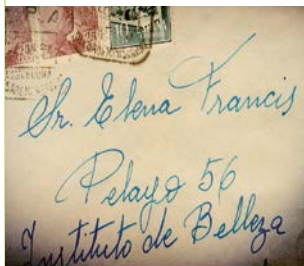 Sr. Elena Francis
Pelayo 56
Instituto de Belleza